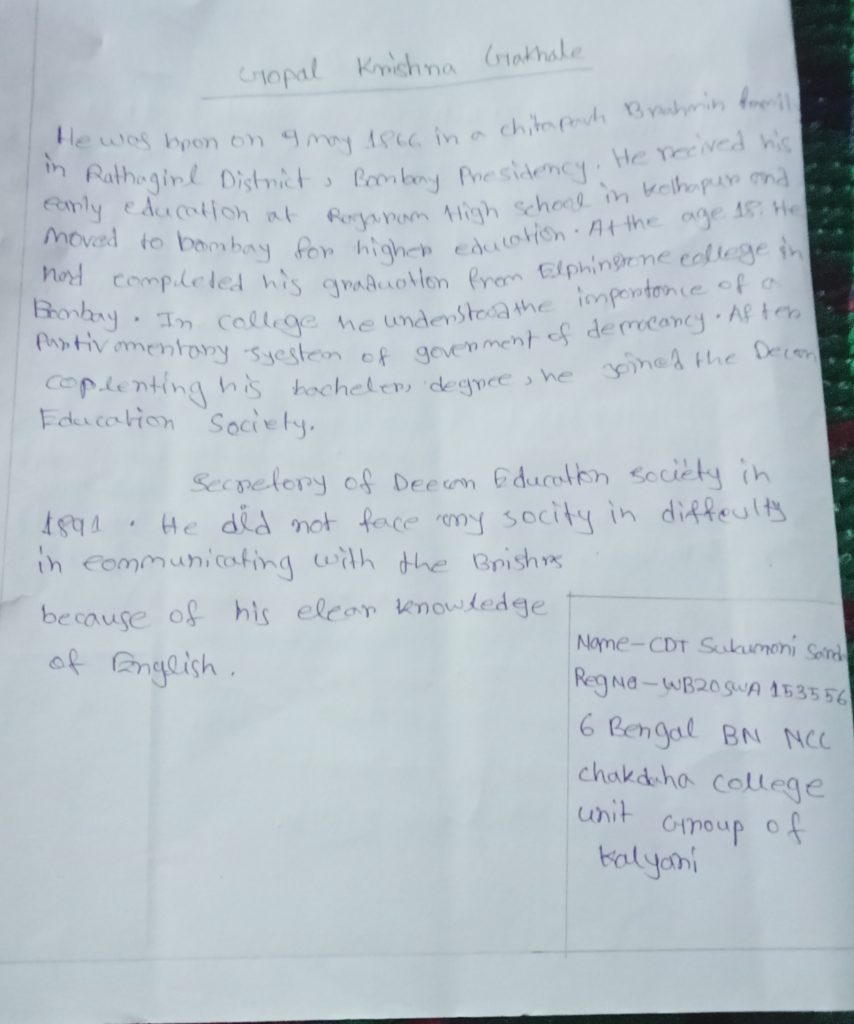 Gopal Krishna Gakhale
He was bpon on 9 may 1866 in a chitapavh Brahmin famil
in Rathagirl District, Bombay Presidency. He recived his
early education at Rajaram High school in kolhapur and
moved to bombay for higher education. At the age 18. He
had compleleted his graduation from Elphinstone college in
Bombay. In college he understood the importance of a
system of government of democancy. After
coplenting his bachelers degree, he joined the Decan
Education Society.
Secretory of Deecan Education society in
1891. He did not face any socity in difficulty
in communicating with the Brishrs
because of his clear knowledge
of English.
Name-CDT Sukumoni Sard
Reg No-WB20SWA 153556
6 Bengal BN NCC
chakdaha college
unit Group of
kalyani